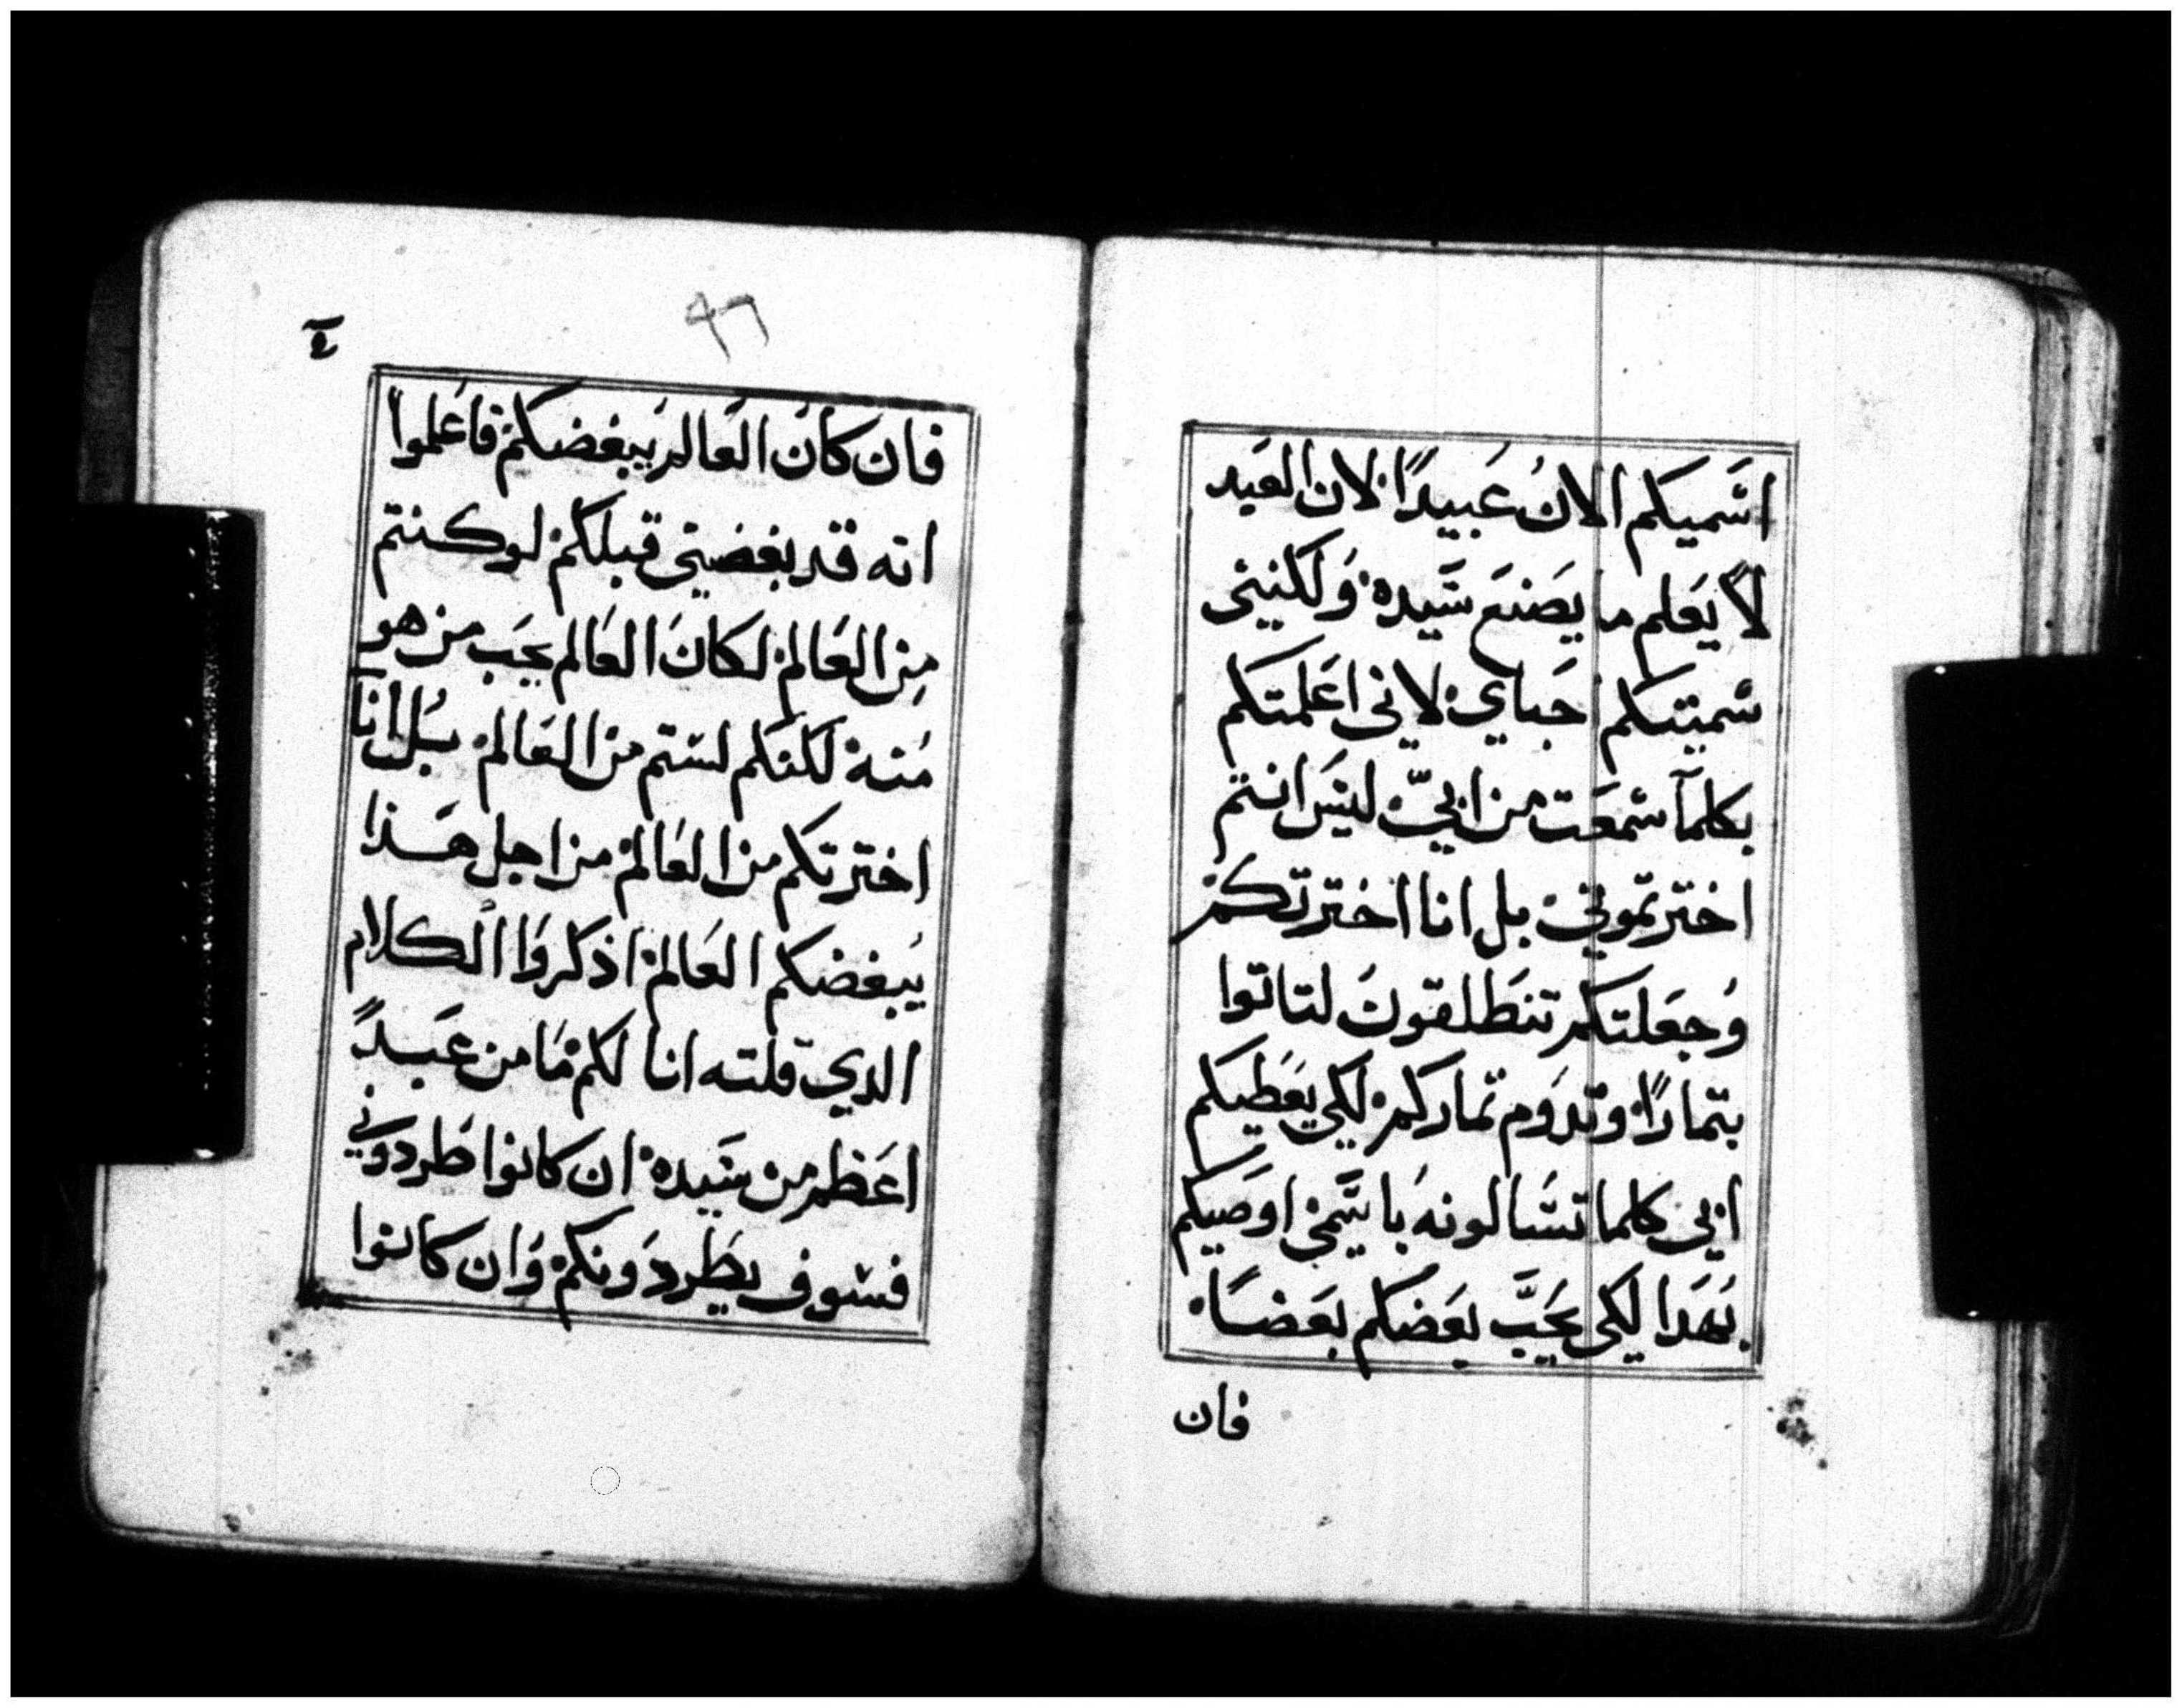 اسميكم الان عبيدًا لان العبد
لا يعلم ما يصنع سيده ولكنني
سميتكم احباي لاني اعلمتكم
بكلما سمعت من ابي ليس انتم
اخترتموني بل انا اخترتكم
وجعلتكم تنطلقون لتاتوا
بتمارًا وتدوم تماركم لكي يعطيكم
ابي كلما تسالونه باسمي اوصيكم
بهدا لكي يحب بعضكم بعضًا
فان
٩٦
فان كان العالم يبغضكم فاعلموا
انه قد بغضني قبلكم لو كنتم
من العالم لكان العالم يحب من هو
منه لكنكم لستم من العالم بل انا
اخترتكم من العالم من اجل هذا
يبغضكم العالم اذكروا الكلام
الدي قلته انا لكم ما من عبدً
اعظم من سيده ان كانوا طردوني
فسوف يطردونكم وان كانوا